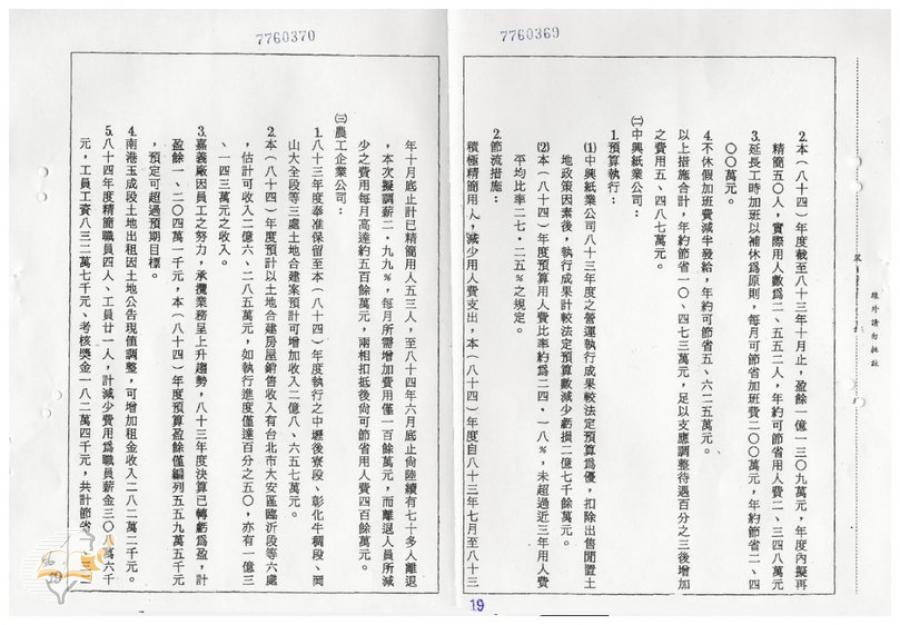 7760369
2.本（八十四）年度截至八十三年十月止，盈餘一億一三〇九萬元，年度內擬再
精簡五〇人，實際用人數爲二、五五二人，年約可節省用人費二、三四八萬元
3.延長工時加班以補休爲原則，每月可節省加班費二〇〇萬元，年約節省二、四
〇〇萬元。
4.不休假加班費減半發給，年約可節省五、六二五萬元。
以上措施合計，年約節省一〇、四七三萬元，足以支應調整待遇百分之三後增加
之費用五、四八七萬元。
㈡中興紙業公司：
1.預算執行：
(1)中興紙業公司八十三年度之營運執行成果較法定預算爲優，扣除出售閒置土
地政策因素後，執行成果計較法定預算數減少虧損二億七千餘萬元。
(2)本（八十四）年度預算用人費比率約爲二四・一八％，未超過近三年用人費
平均比率二七・二五％之規定。
2.節流措施：
積極精簡用人，減少用人費支出，本（八十四）年度自八十三年七月至八十三
7760370
年十月底止計已精簡用人五三人，至八十四年六月底止尙陸續有七十多人離退
，本次擬調薪二・九九％，每月所需增加費用僅一百餘萬元，而離退人員所減
少之費用每月高達約五百餘萬元，兩相扣抵後尙可節省用人費四百餘萬元。
㈢農工企業公司：
1.八十三年度奉准保留至本（八十四）年度執行之中壢後寮段、彰化牛稠段、岡
山大全段等三處土地合建案預計可增加收入二億八、六五七萬元。
2.本（八十四）年度預計以土地合建房屋銷售收入有台北市大安區臨沂段等六處
，估計可收入二億六、二八五萬元，如執行進度僅達百分之五〇，亦有一億三
、一四三萬元之收入。
3.嘉義廠因員工之努力，承攬業務呈上升趨勢，八十三年度決算已轉虧爲盈，計
盈餘一、二〇四萬一千元，本（八十四）年度預算盈餘僅編列五五九萬五千元
，預定可超過預期目標。
4.南港玉成段土地出租因土地公告現值調整，可增加租金收入二八二萬二千元。
5.八十四年度精簡職員四人、工員廿一人，計減少費用爲職員薪金三〇八萬六千
元，工員工資八三二萬七千元、考核獎金一八二萬四千元，共計節省
線外請勿批註
19